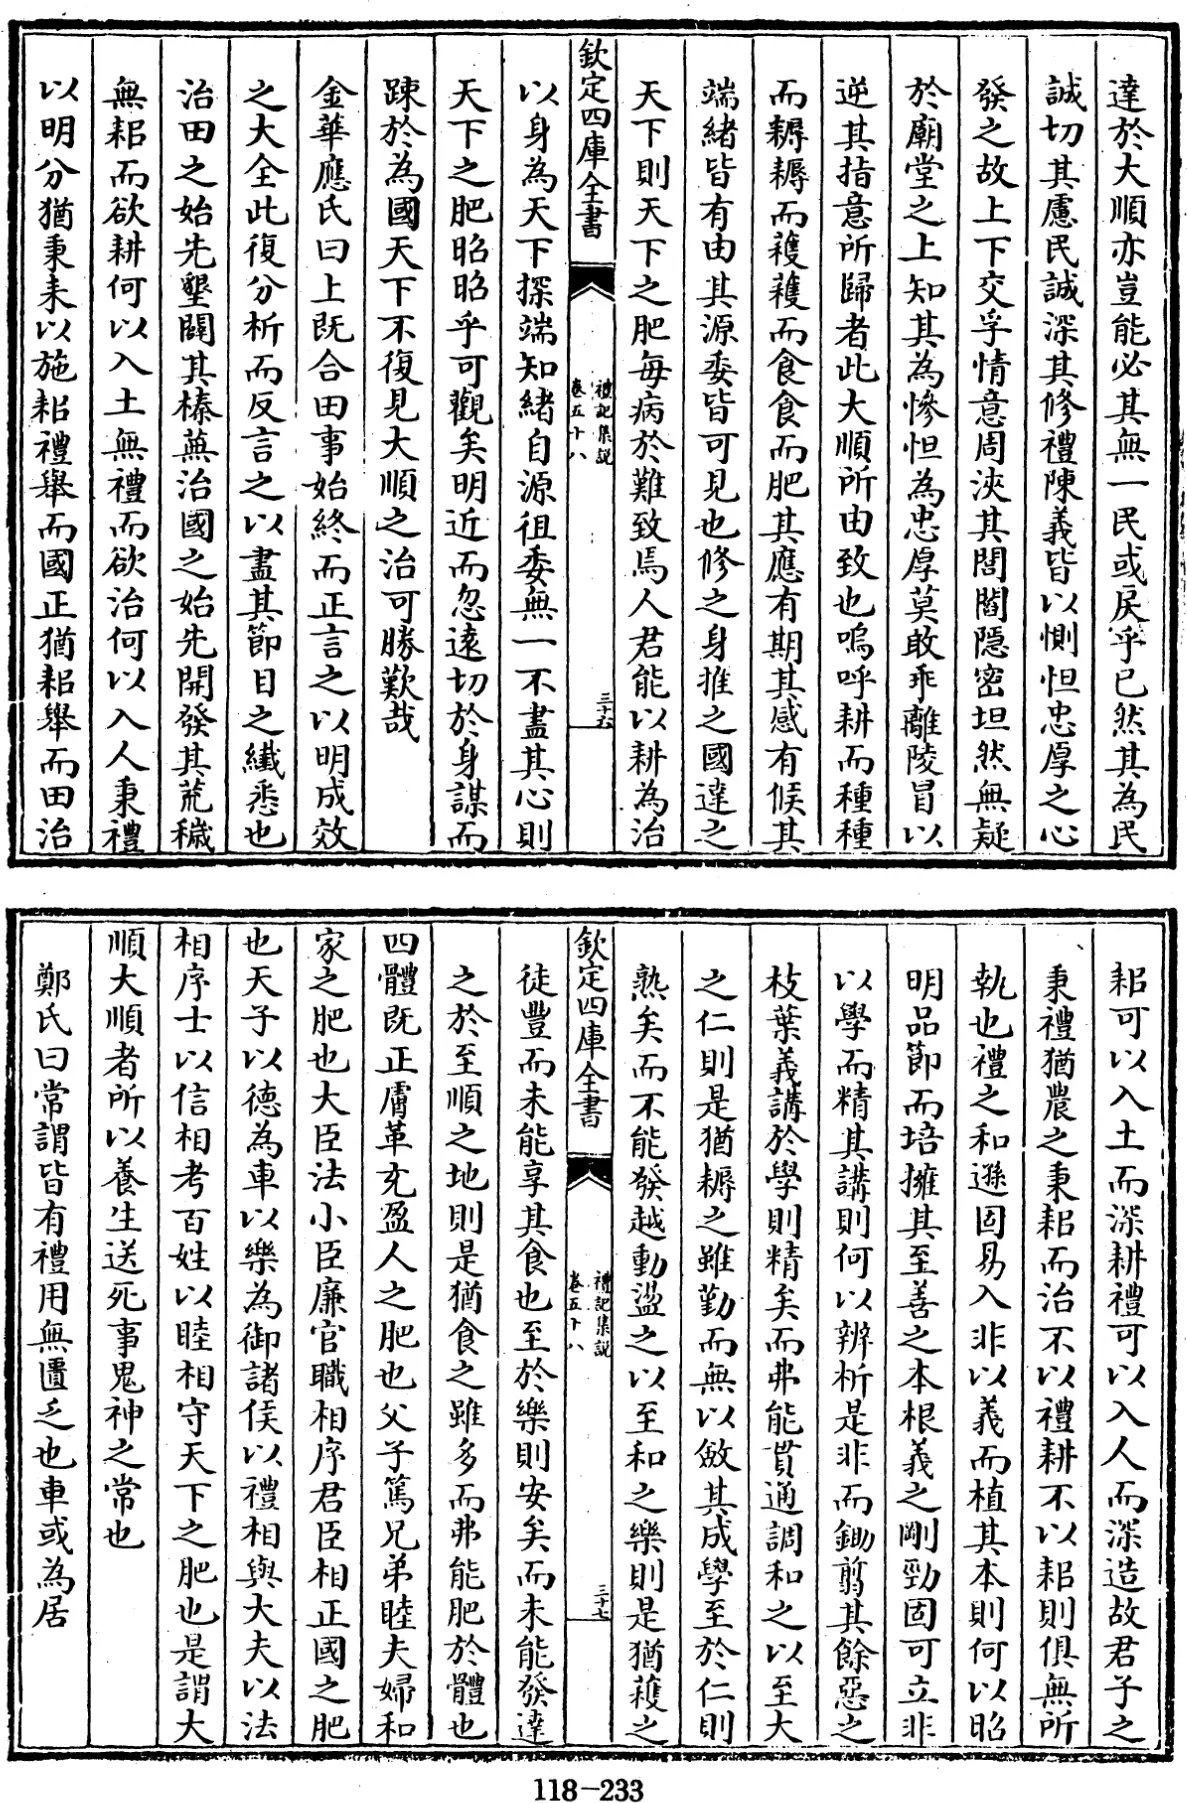 達於大順亦豈能必其無一民或戾乎已然其為民
誠切其慮民誠深其修禮陳義皆以惻怛忠厚之心
發之故上下交孚情意周浹其閭閻隱密坦然無疑
於廟堂之上知其為慘怛為忠厚莫敢乖離陵冒以
逆其指意所歸者此大順所由致也嗚呼耕而種種
而耨耨而穫穫而食食而肥其應有期其感有候其
端緒皆有由其源委皆可見也修之身推之國達之
天下則天下之肥每病於難致焉人君能以耕為治
欽定四庫全書
禮記集說
卷五十八
三十六
以身為天下探端知緒自源徂委無一不盡其心則
天下之肥昭昭乎可觀矣明近而忽遠切於身謀而
踈於為國天下不復見大順之治可勝歎哉
金華應氏曰上既合田事始終而正言之以明成效
之大全此復分析而反言之以盡其節目之纎悉也
治田之始先墾闢其榛蕪治國之始先開發其荒穢
無耜而欲耕何以入土無禮而欲治何以入人秉禮
以明分猶秉耒以施耜禮舉而國正猶耜舉而田治
耜可以入土而深耕禮可以入人而深造故君子之
秉禮猶農之秉耜而治不以禮耕不以耜則俱無所
執也禮之和遜固易入非以義而植其本則何以昭
明品節而培擁其至善之本根義之剛勁固可立非
以學而精其講則何以辨析是非而鋤翦其餘惡之
枝葉義講於學則精矣而弗能貫通調和之以至大
之仁則是猶耨之雖勤而無以斂其成學至於仁則
熟矣而不能發越動盪之以至和之樂則是猶穫之
欽定四庫全書
禮記集說
卷五十八
三十七
徒豐而未能享其食也至於樂則安矣而未能發達
之於至順之地則是猶食之雖多而弗能肥於體也
四體既正膚革充盈人之肥也父子篤兄弟睦夫婦和
家之肥也大臣法小臣廉官職相序君臣相正國之肥
也天子以德為車以樂為御諸侯以禮相與大夫以法
相序士以信相考百姓以睦相守天下之肥也是謂大
順大順者所以養生送死事鬼神之常也
鄭氏曰常謂皆有禮用無匱乏也車或為居
118-233